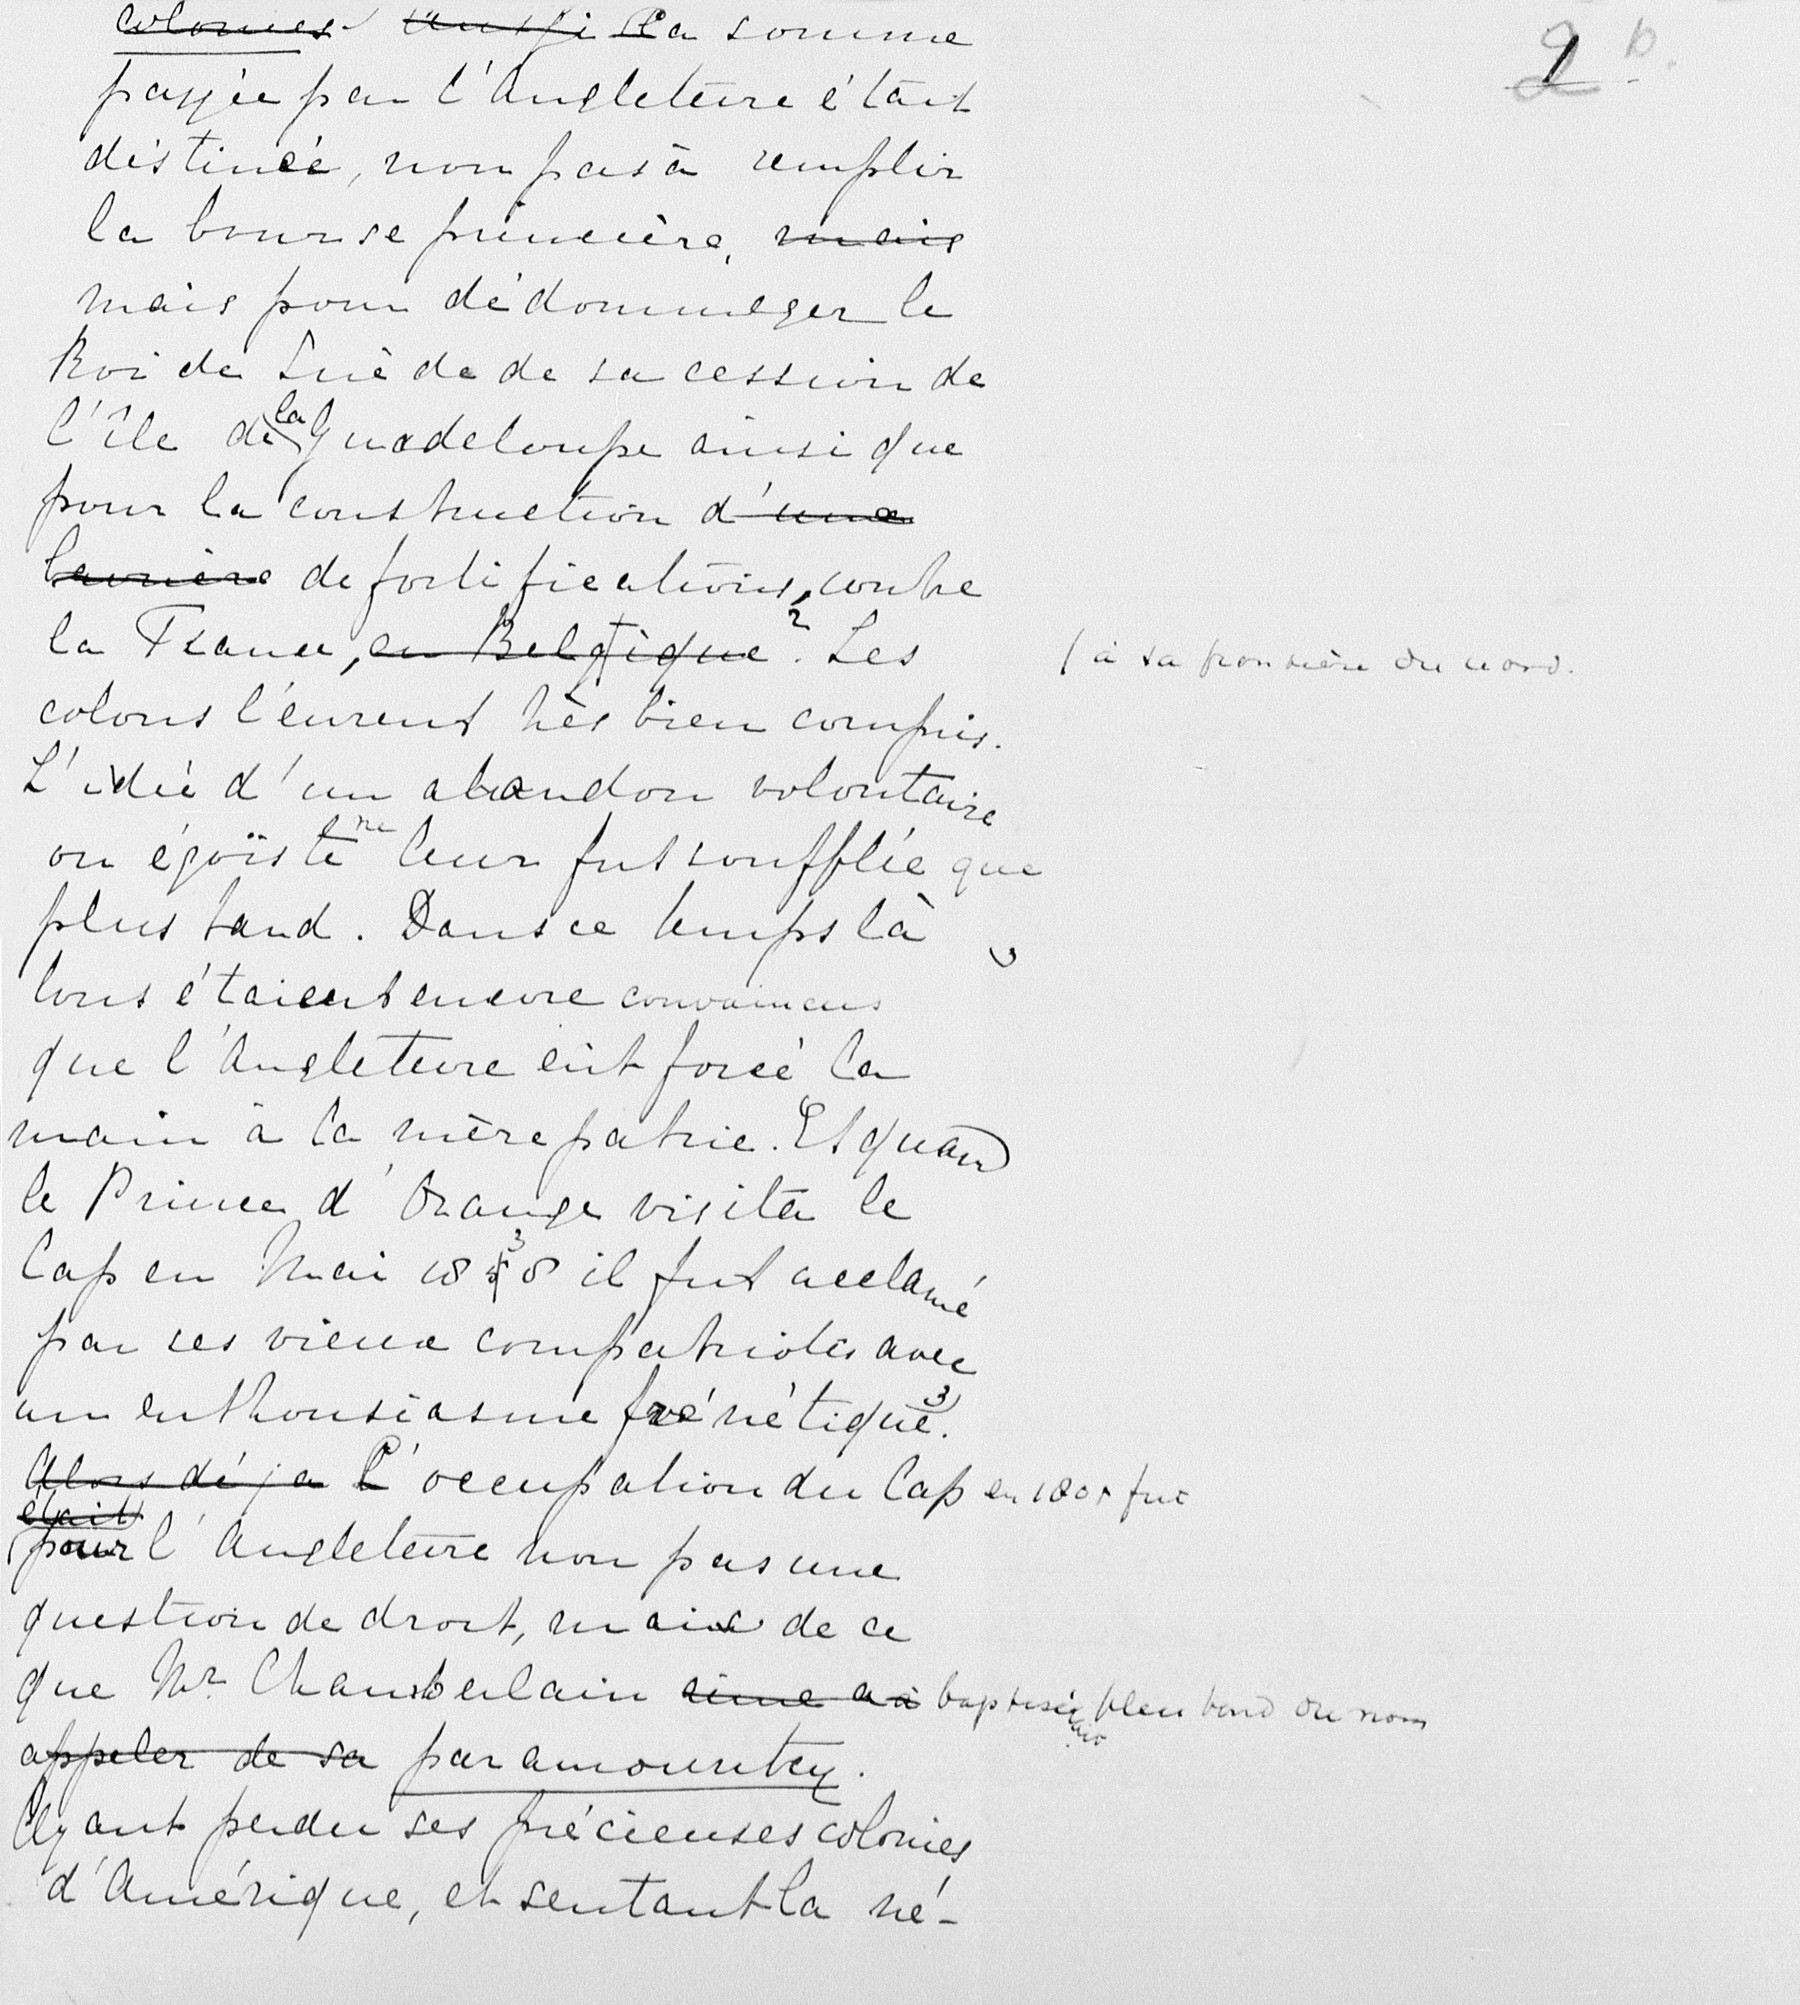 2 b.
colonies. Aussi La somme
payée par l'Angleterre étant
destinée, non pas à remplir
la bourse princière, mais
mais pour dédommager le
Roi de Suède de sa cession de
l'île de la Guadeloupe ainsi que
pour la construction d'une
barrière de fortifications, contre
la France, en Belgique 2. Les
( à sa frontière du nord.
colons l'eurent très bien compris.
L'idée d'un abandon volontaire
ou égoïste ne leur fut soufflée que
plus tard. Dans ce temps là
tous étaient encore convaincus
que l'Angleterre eût forcé la
main à la mère patrie. Et quand
le Prince d'Orange visita le
Cap en Mai 1838 il fut acclamé
par ses vieux compatriotes avec
un enthousiasme frénétique 3).
Alors déja L'occupation du Cap en 1805 fut
était
pour l'Angleterre non pas une
question de droit, mais de ce
que Mr. Chamberlain aime à baptisé plus tard du nom
appeler de sa paramountcy.
Ayant perdu ses précieuses colonies
d'Amérique, et sentant la né-